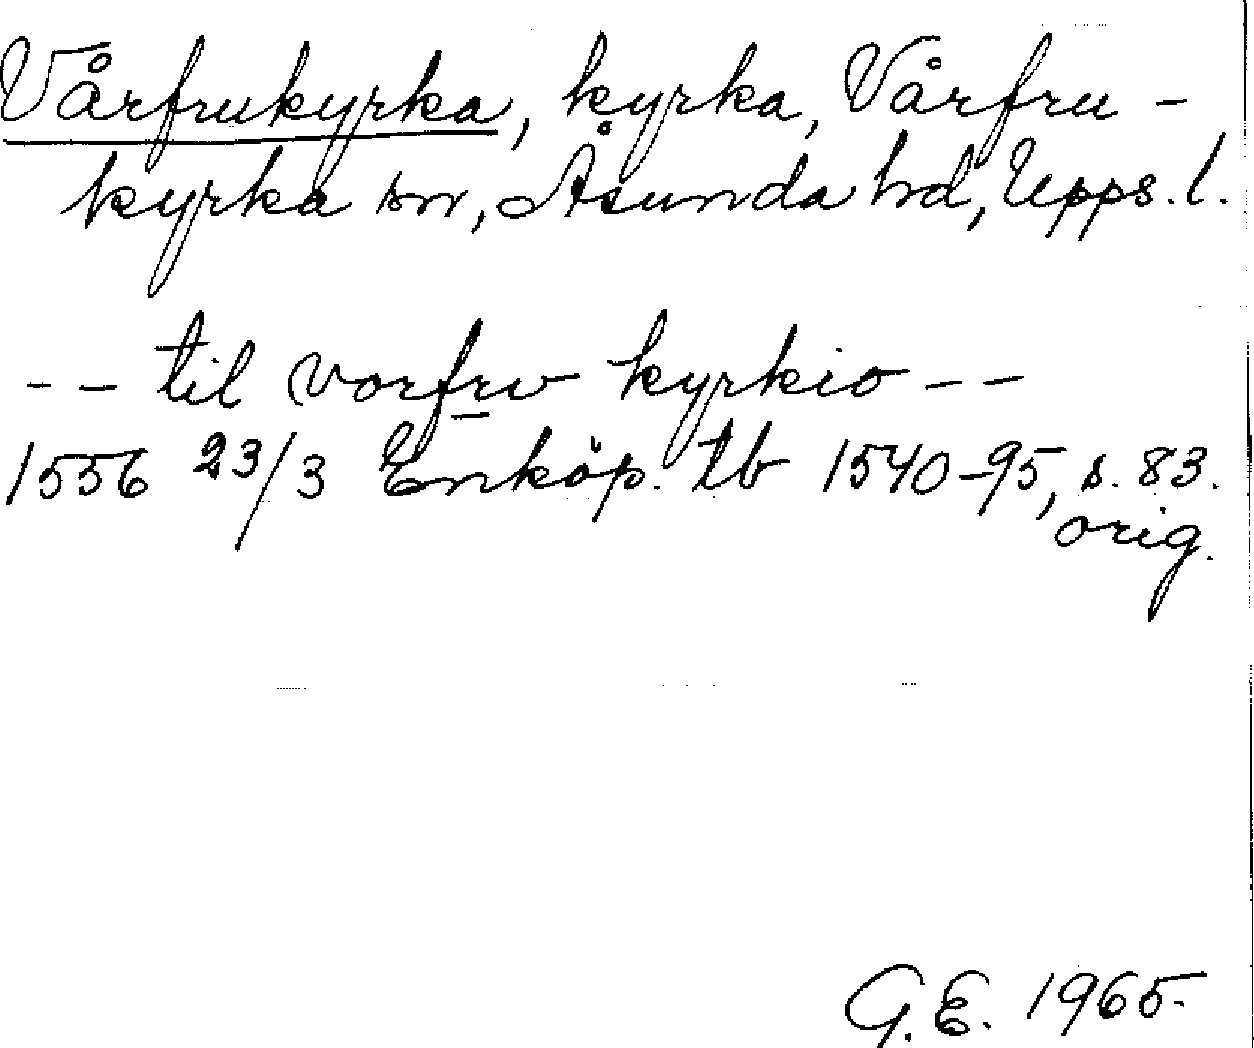 Vårfrukyrka, kyrka, Vårfru-
kyrka sn, Åsunda hd, Upps. l.
-- til vorfrv kyrkio --
1556 23/3 Enköp. tb 1540-95, s. 83.
orig.
G.E. 1965.